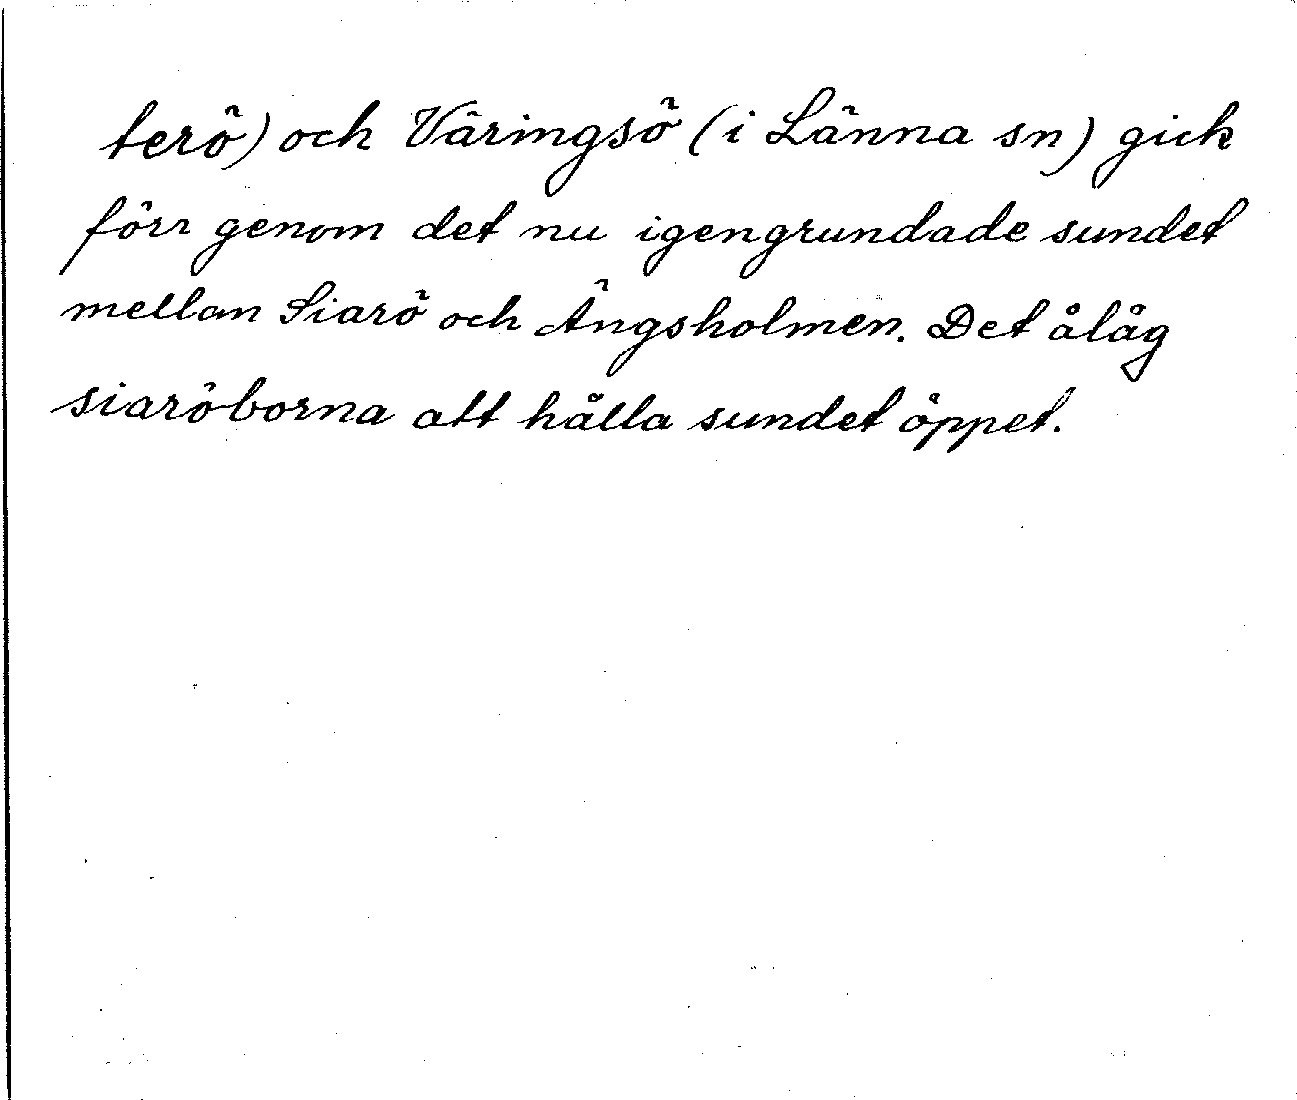 terö) och Väringsö (i Länna sn) gick
förr genom det nu igengrundade sundet
mellan Siarö och Ängsholmen. Det ålåg
siaröborna att hålla sundet öppet.